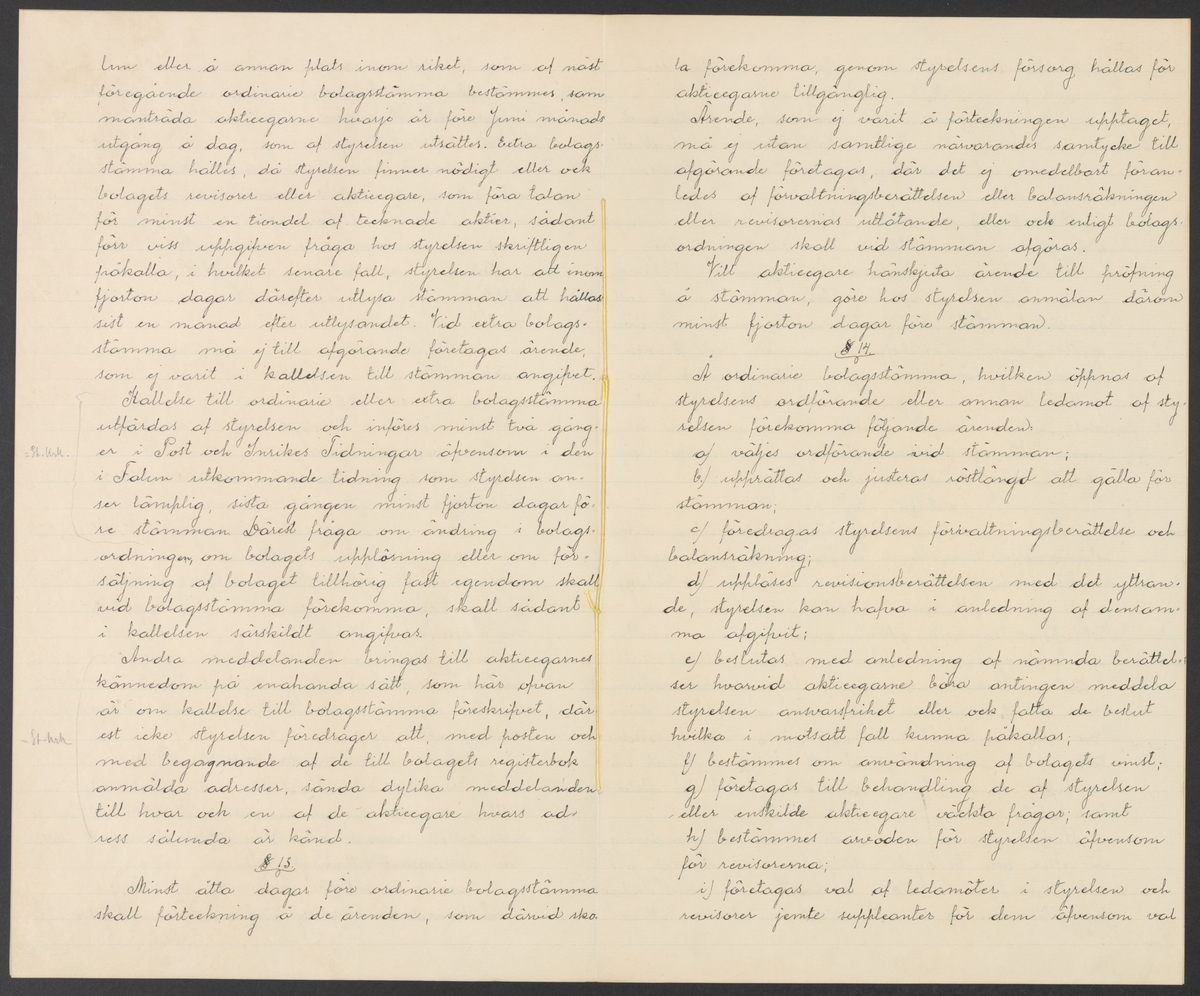 lun eller å annan plats inom riket, som af näst
föregående ordinarie bolagsstämma bestämmes, sam
manträda aktieegarne hvarje år före Juni månads
utgång å dag, som af styrelsen utsättes. Extra bolags-
stämma hålles, då styrelsen finner nödigt eller ock
bolagets revisorer eller aktieegare, som föra talan
för minst en tiondel af tecknade aktier, sådant
förr viss uppgifven fråga hos styrelsen skriftligen
påkalla, i hvilket senare fall, styrelsen har att inom
fjorton dagar därefter utlysa stämman att hållas
sist en månad efter utlysandet. Vid extra bolags-
stämma må ej till afgörande företagas ärende,
som ej varit i kallelsen till stämman angifvet.
Kallelse till ordinarie eller extra bolagsstämma
utfärdas af styrelsen och införes minst två gång-
er i Post och Inrikes Tidningar äfvensom i den
i Falun utkommande tidning som styrelsen an-
ser lämplig, sista gången minst fjorton dagar fö-
re stämman. Därest fråga om ändring i bolags-
ordningen, om bolagets upplösning eller om för-
säljning af bolaget tillhörig fast egendom skall
vid bolagsstämma förekomma, skall sådant
i kallelsen särskildt angifvas.
Andra meddelanden bringas till aktieegarnes
kännedom på enahanda sätt, som här ofvan
är om kallelse till bolagsstämma föreskrifvet, där
est icke styrelsen föredrager att, med posten och
med begagnande af de till bolagets registerbok
anmälda adresser, sända dylika meddelanden
till hvar och en af de aktieegare hvars ad-
ress sålunda är känd.
§ 13
Minst åtta dagar före ordinarie bolagsstämma
skall förteckning å de ärenden, som därvid sko
la förekomma, genom styrelsens försorg hållas för
aktieegarne tillgänglig.
Ärende, som ej varit å förteckningen upptaget,
må ej utan samtlige närvarandes samtycke till
afgörande företagas, där det ej omedelbart föran-
ledes af förvaltningsberättelsen eller balansräkningen
eller revisorernas utlåtande, eller ock enligt bolags-
ordningen skall vid stämman afgöras.
Vill aktieegare hänskjuta ärende till pröfning
å stämman, göre hos styrelsen anmälan därom
minst fjorton dagar före stämman.
§ 14
Å ordinarie bolagsstämma, hvilken öppnas af
styrelsens ordförande eller annan ledamot af sty-
relsen förekomma följande ärenden:
a) väljes ordförande vid stämman;
b) upprättas och justeras röstlängd att gälla för
stämman;
c) föredragas styrelsens förvaltningsberättelse och
balansräkning;
d) uppläses revisionsberättelsen med det yttran-
de, styrelsen kan hafva i anledning af densam-
ma afgifvit;
e) beslutas med anledning af nämnda berättel-
ser hvarvid aktieegarne böra antingen meddela
styrelsen ansvarsfrihet eller ock fatta de beslut
hvilka i motsatt fall kunna påkallas;
f) bestämmes om användning af bolagets vinst;
g) företagas till behandling de af styrelsen
eller enskilde aktieegare väckta frågor; samt
h) bestämmes arvoden för styrelsen äfvensom
för revisorerna;
i) företagas val af ledamöter i styrelsen och
revisorer jemte suppleanter för dem äfvensom val